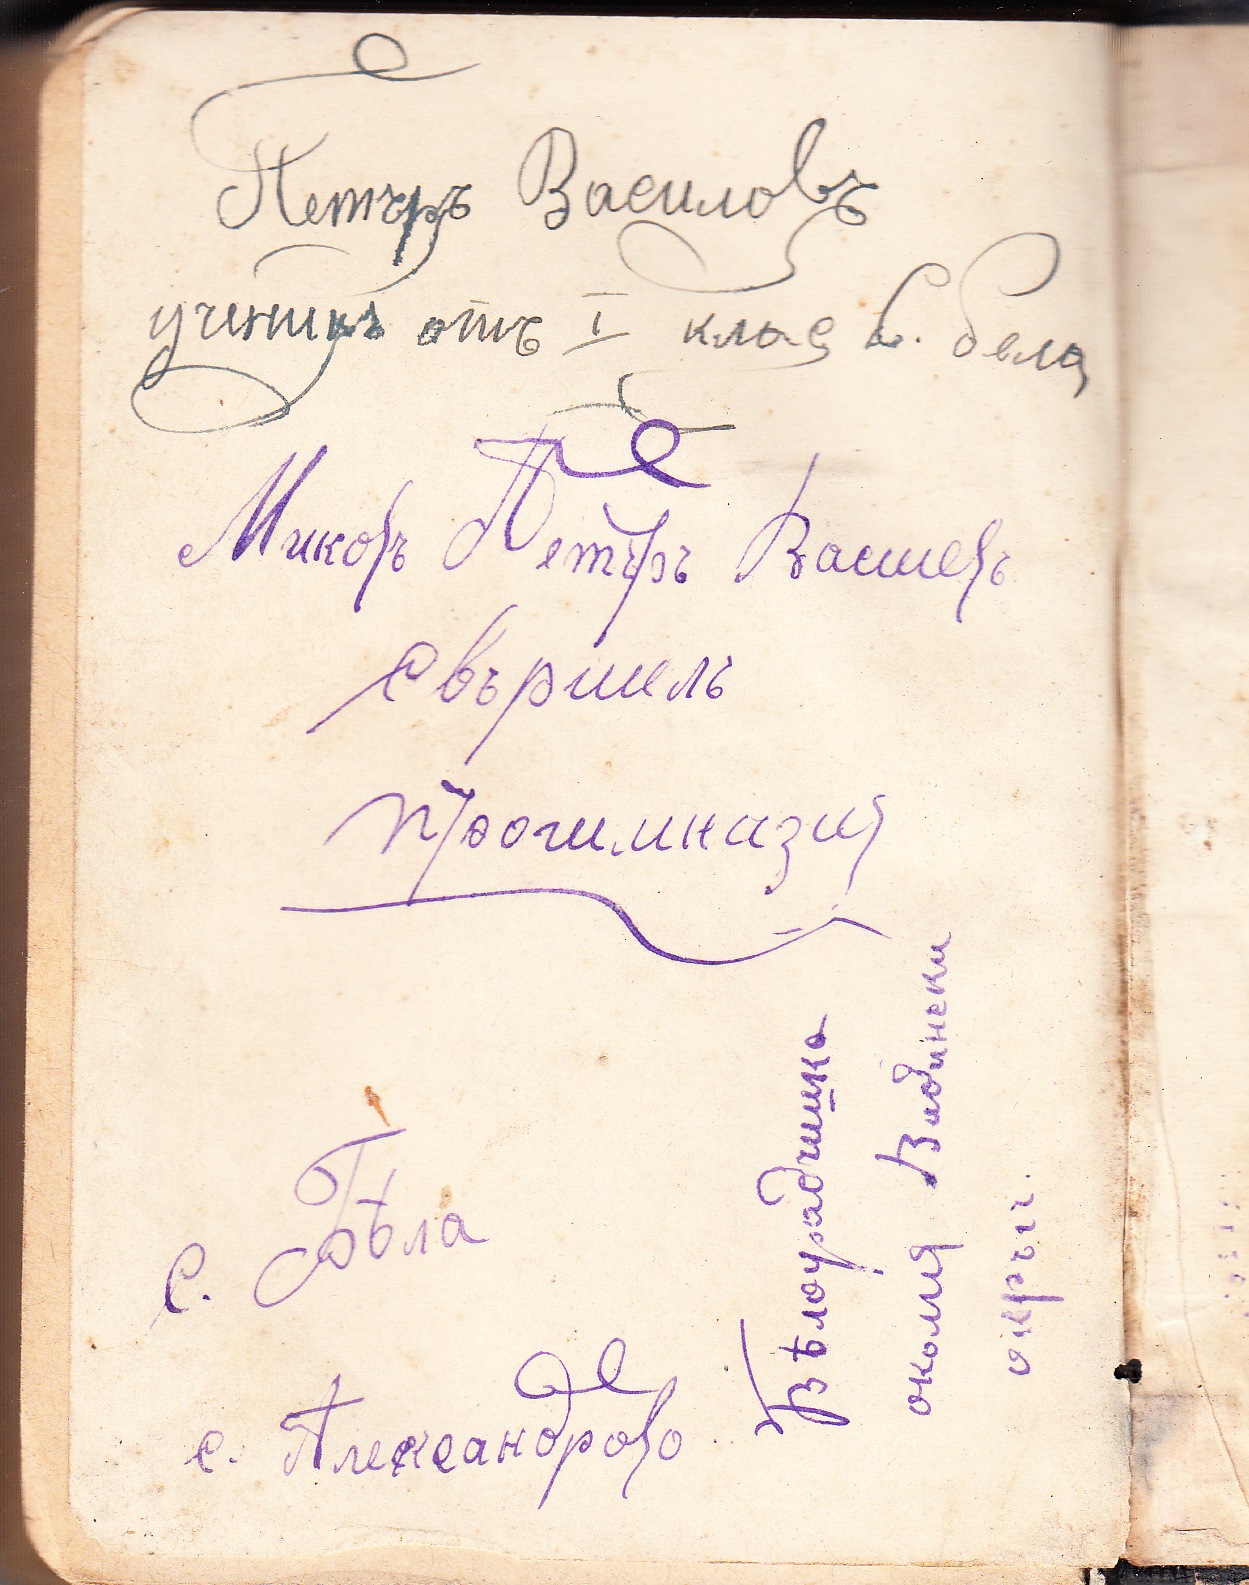 Петъръ Василовъ
ученикъ отъ I клас с. бела
Петъръ
свършелъ
прогимназия
с. Бѣла
с. Александрово
Бѣлоградчишка
околия Видински
окръг.